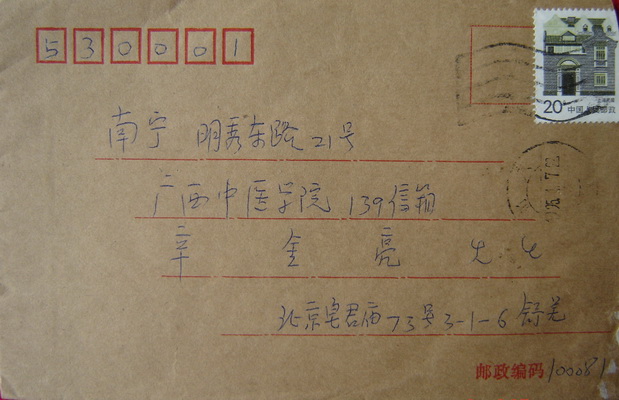 530001
20分
中国人民邮政
南宁 明秀东路21号
广西中医学院 139信箱
辛金亮 先生
北京皂君庙73号3-1-6 舒芜
邮政编码 100081